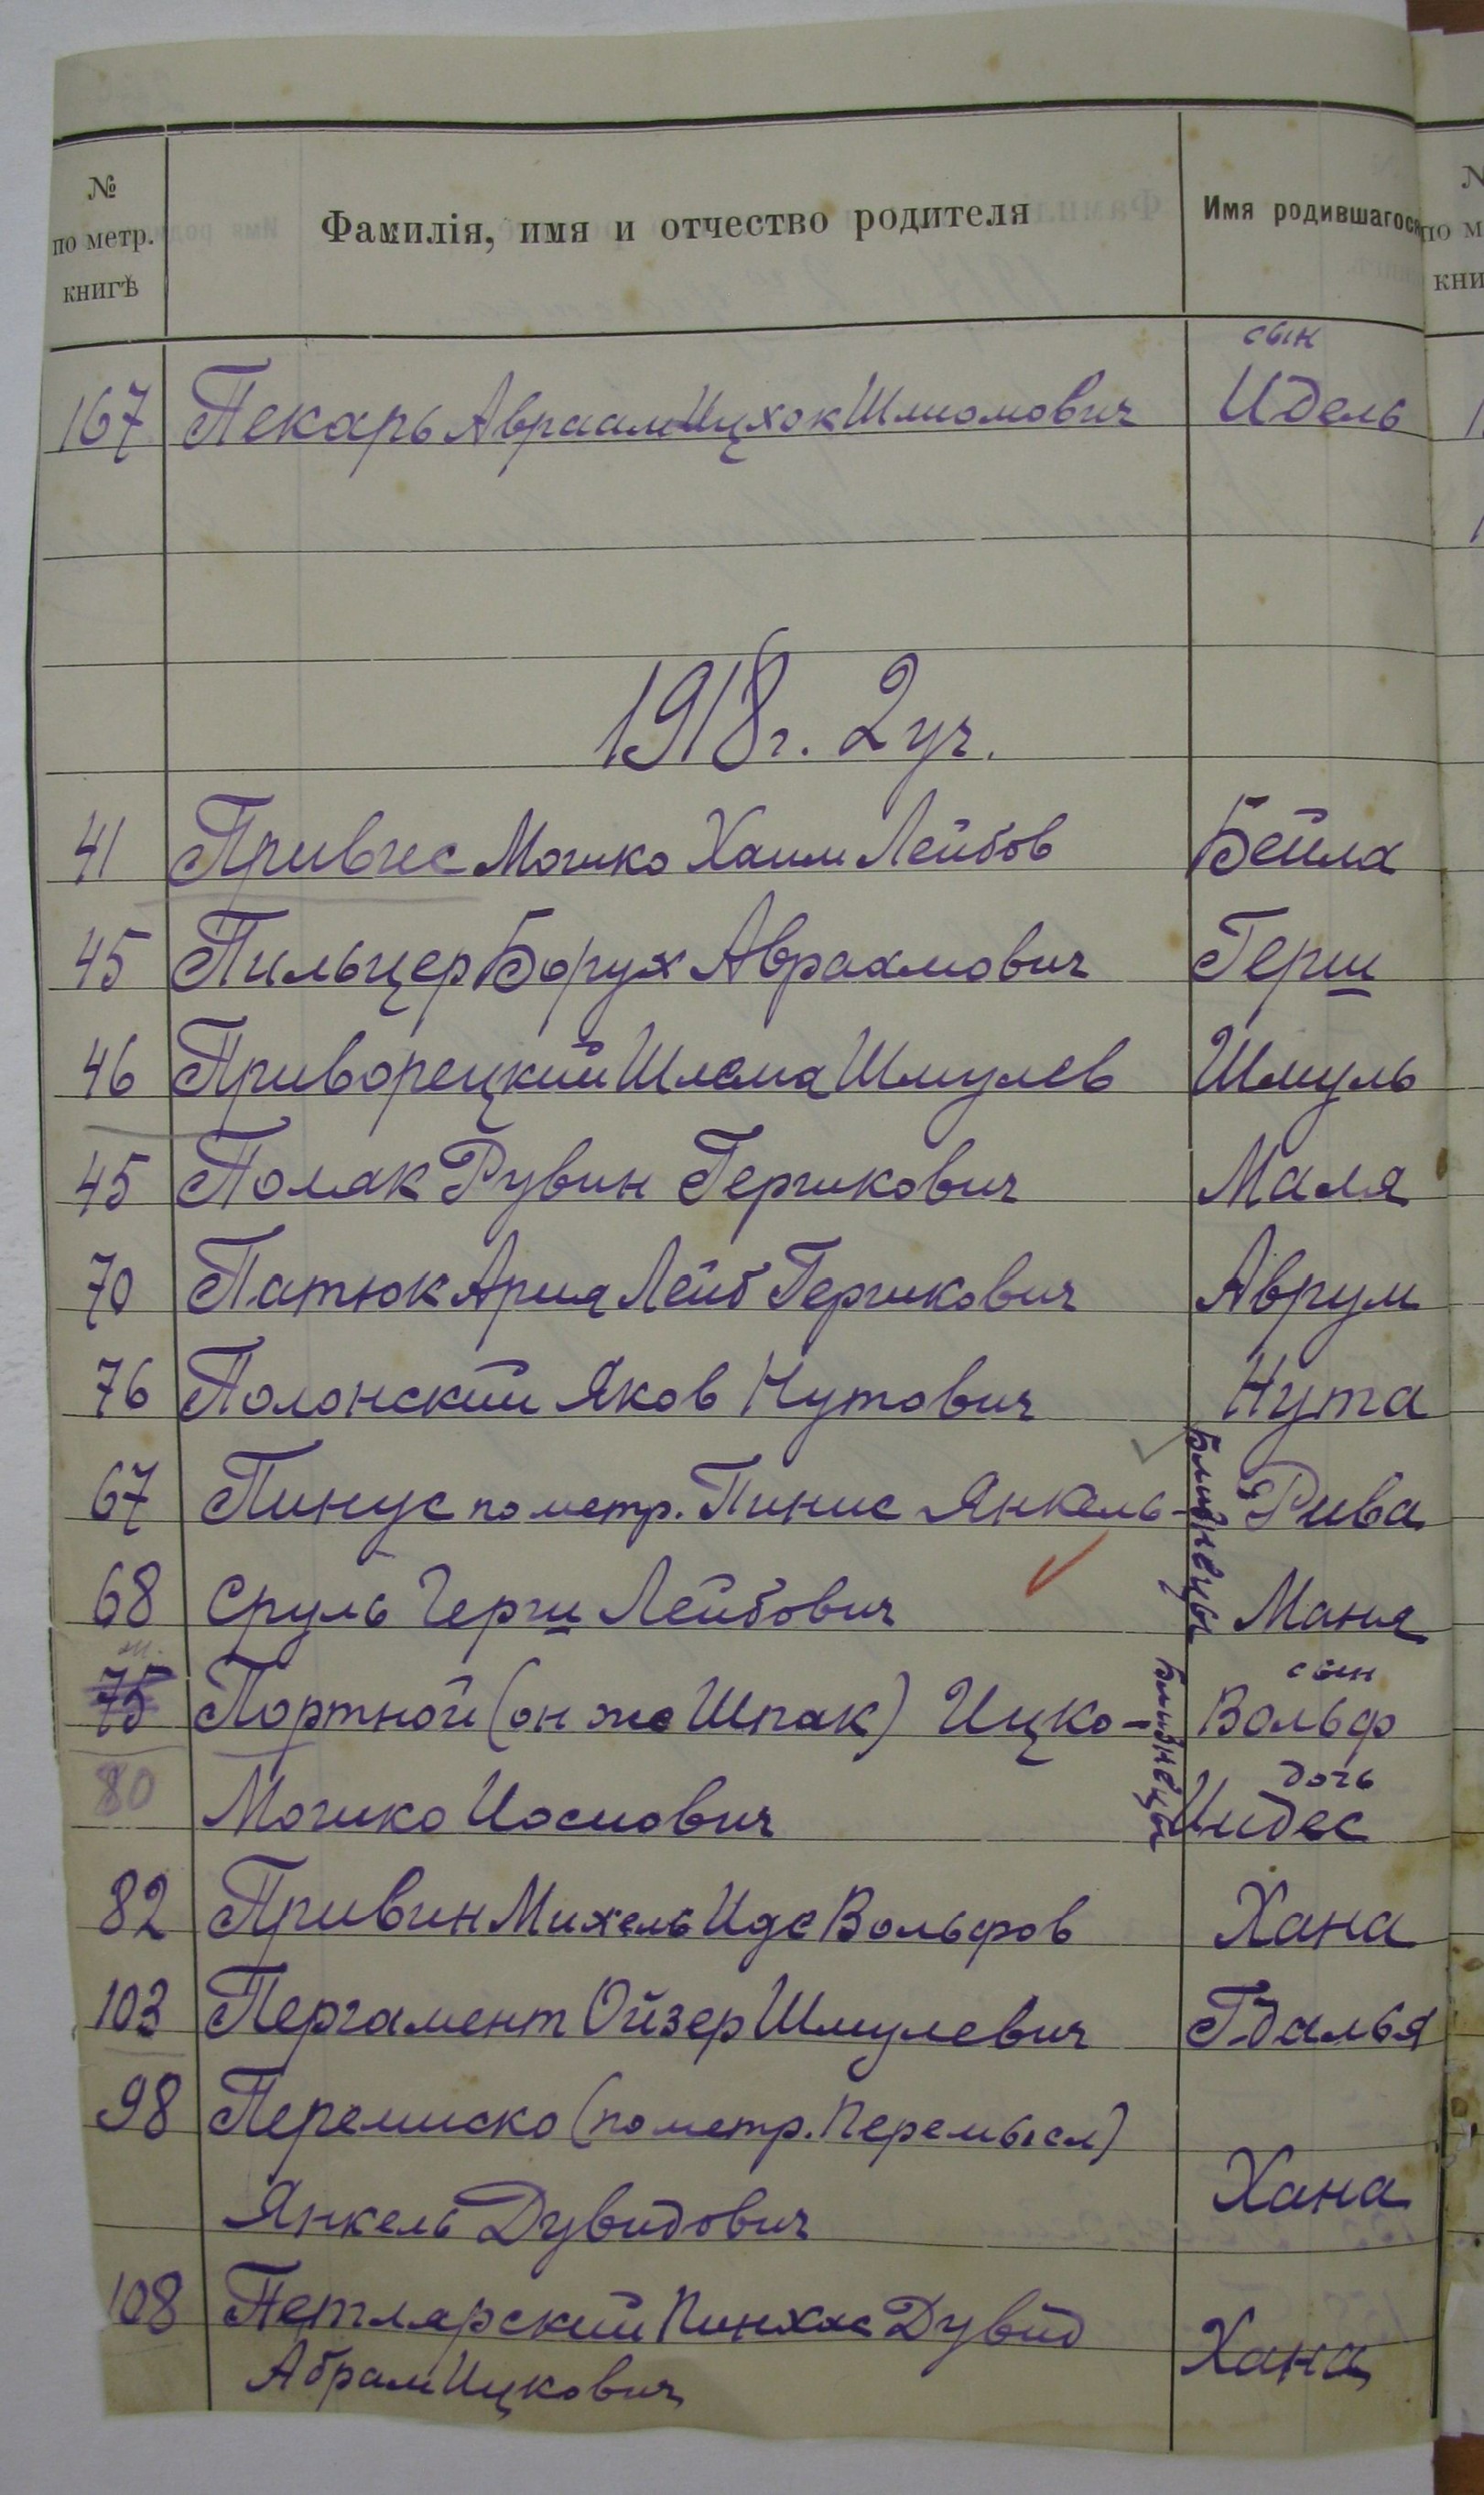 № по метр. книгѣ Фамилія, имя и отчество родителя Имя родившагося
сын
167 Пекарь Авраам Ицхок Шлиомович Идель
1918 г. 2 уч.
41 Привис Мошко Хаим Лейбов Бейла
45 Пильцер Борух Авраамович Герш
46 Приворецкий Шлема Шмулев Шмуль
45 Поляк Рувин Гершкович Маля
70 Патюк Ария Лейб Гершкович Аврум
76 Полонский Яков Нутович Нута
67 Пинус по метр. Пинис Янкель- близнецы Рива
68 Сруль Герш Лейбович Маня
сын
75 Портной (он же Шпак) Ицко- близнецы Вольф
дочь
80 Мошко Иосиович Индес
82 Привин Михель Иде Вольфов Хана
103 Пергамент Ойзер Шмулевич Гдалья
98 Перемиско (по метр. Перемысл)
Янкель Дувидович Хана
108 Петлярский Пинхас Дувид
Абрам Ицкович Хана
№
по м
кни